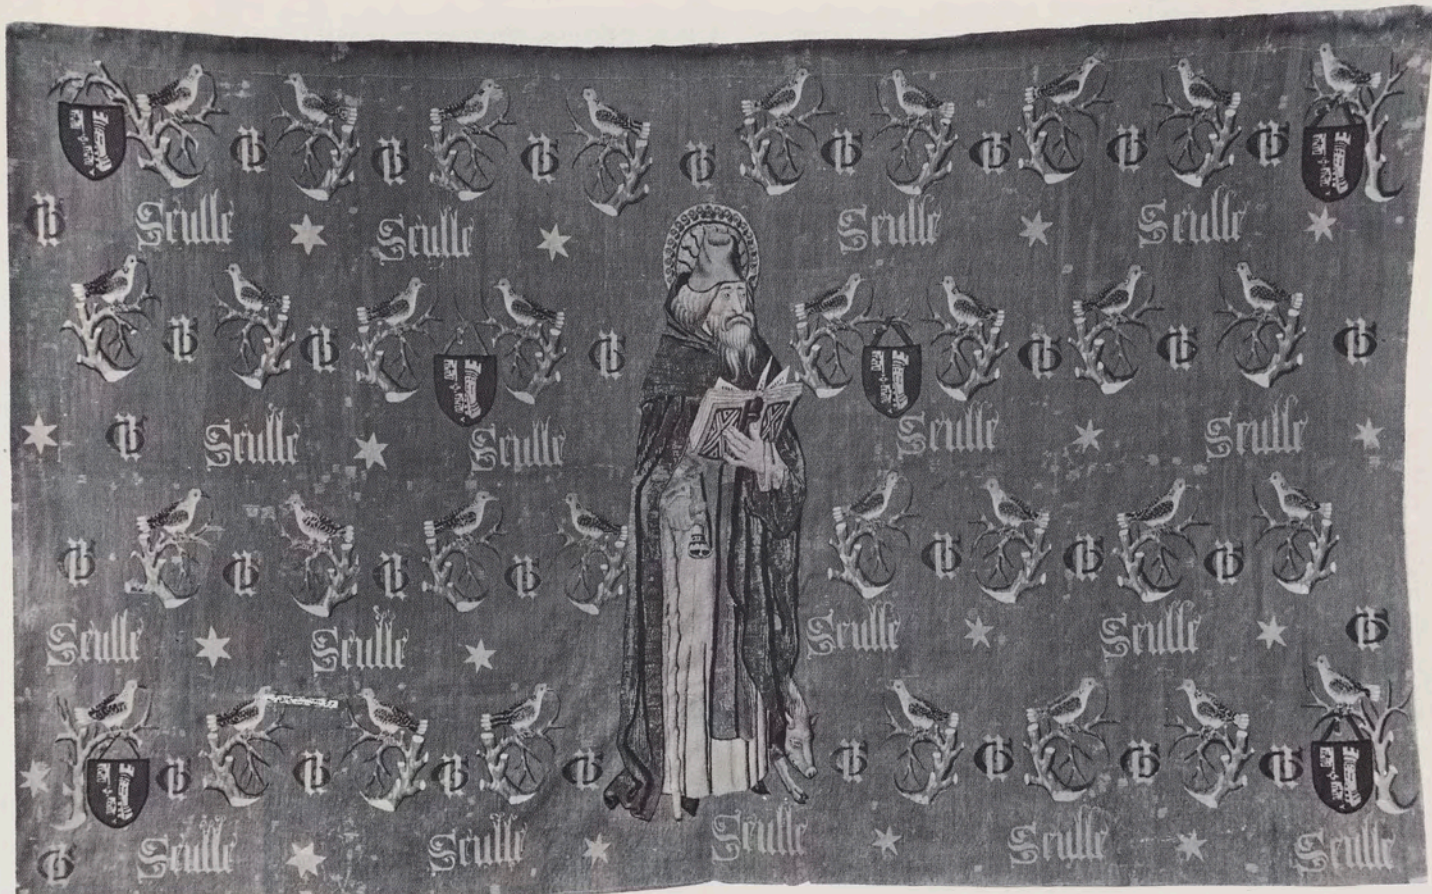 Seulle Seulle Seulle Seulle
Seulle Seulle Seulle Seulle
Seulle Seulle Seulle Seulle
Seulle Seulle Seulle Seulle Seulle